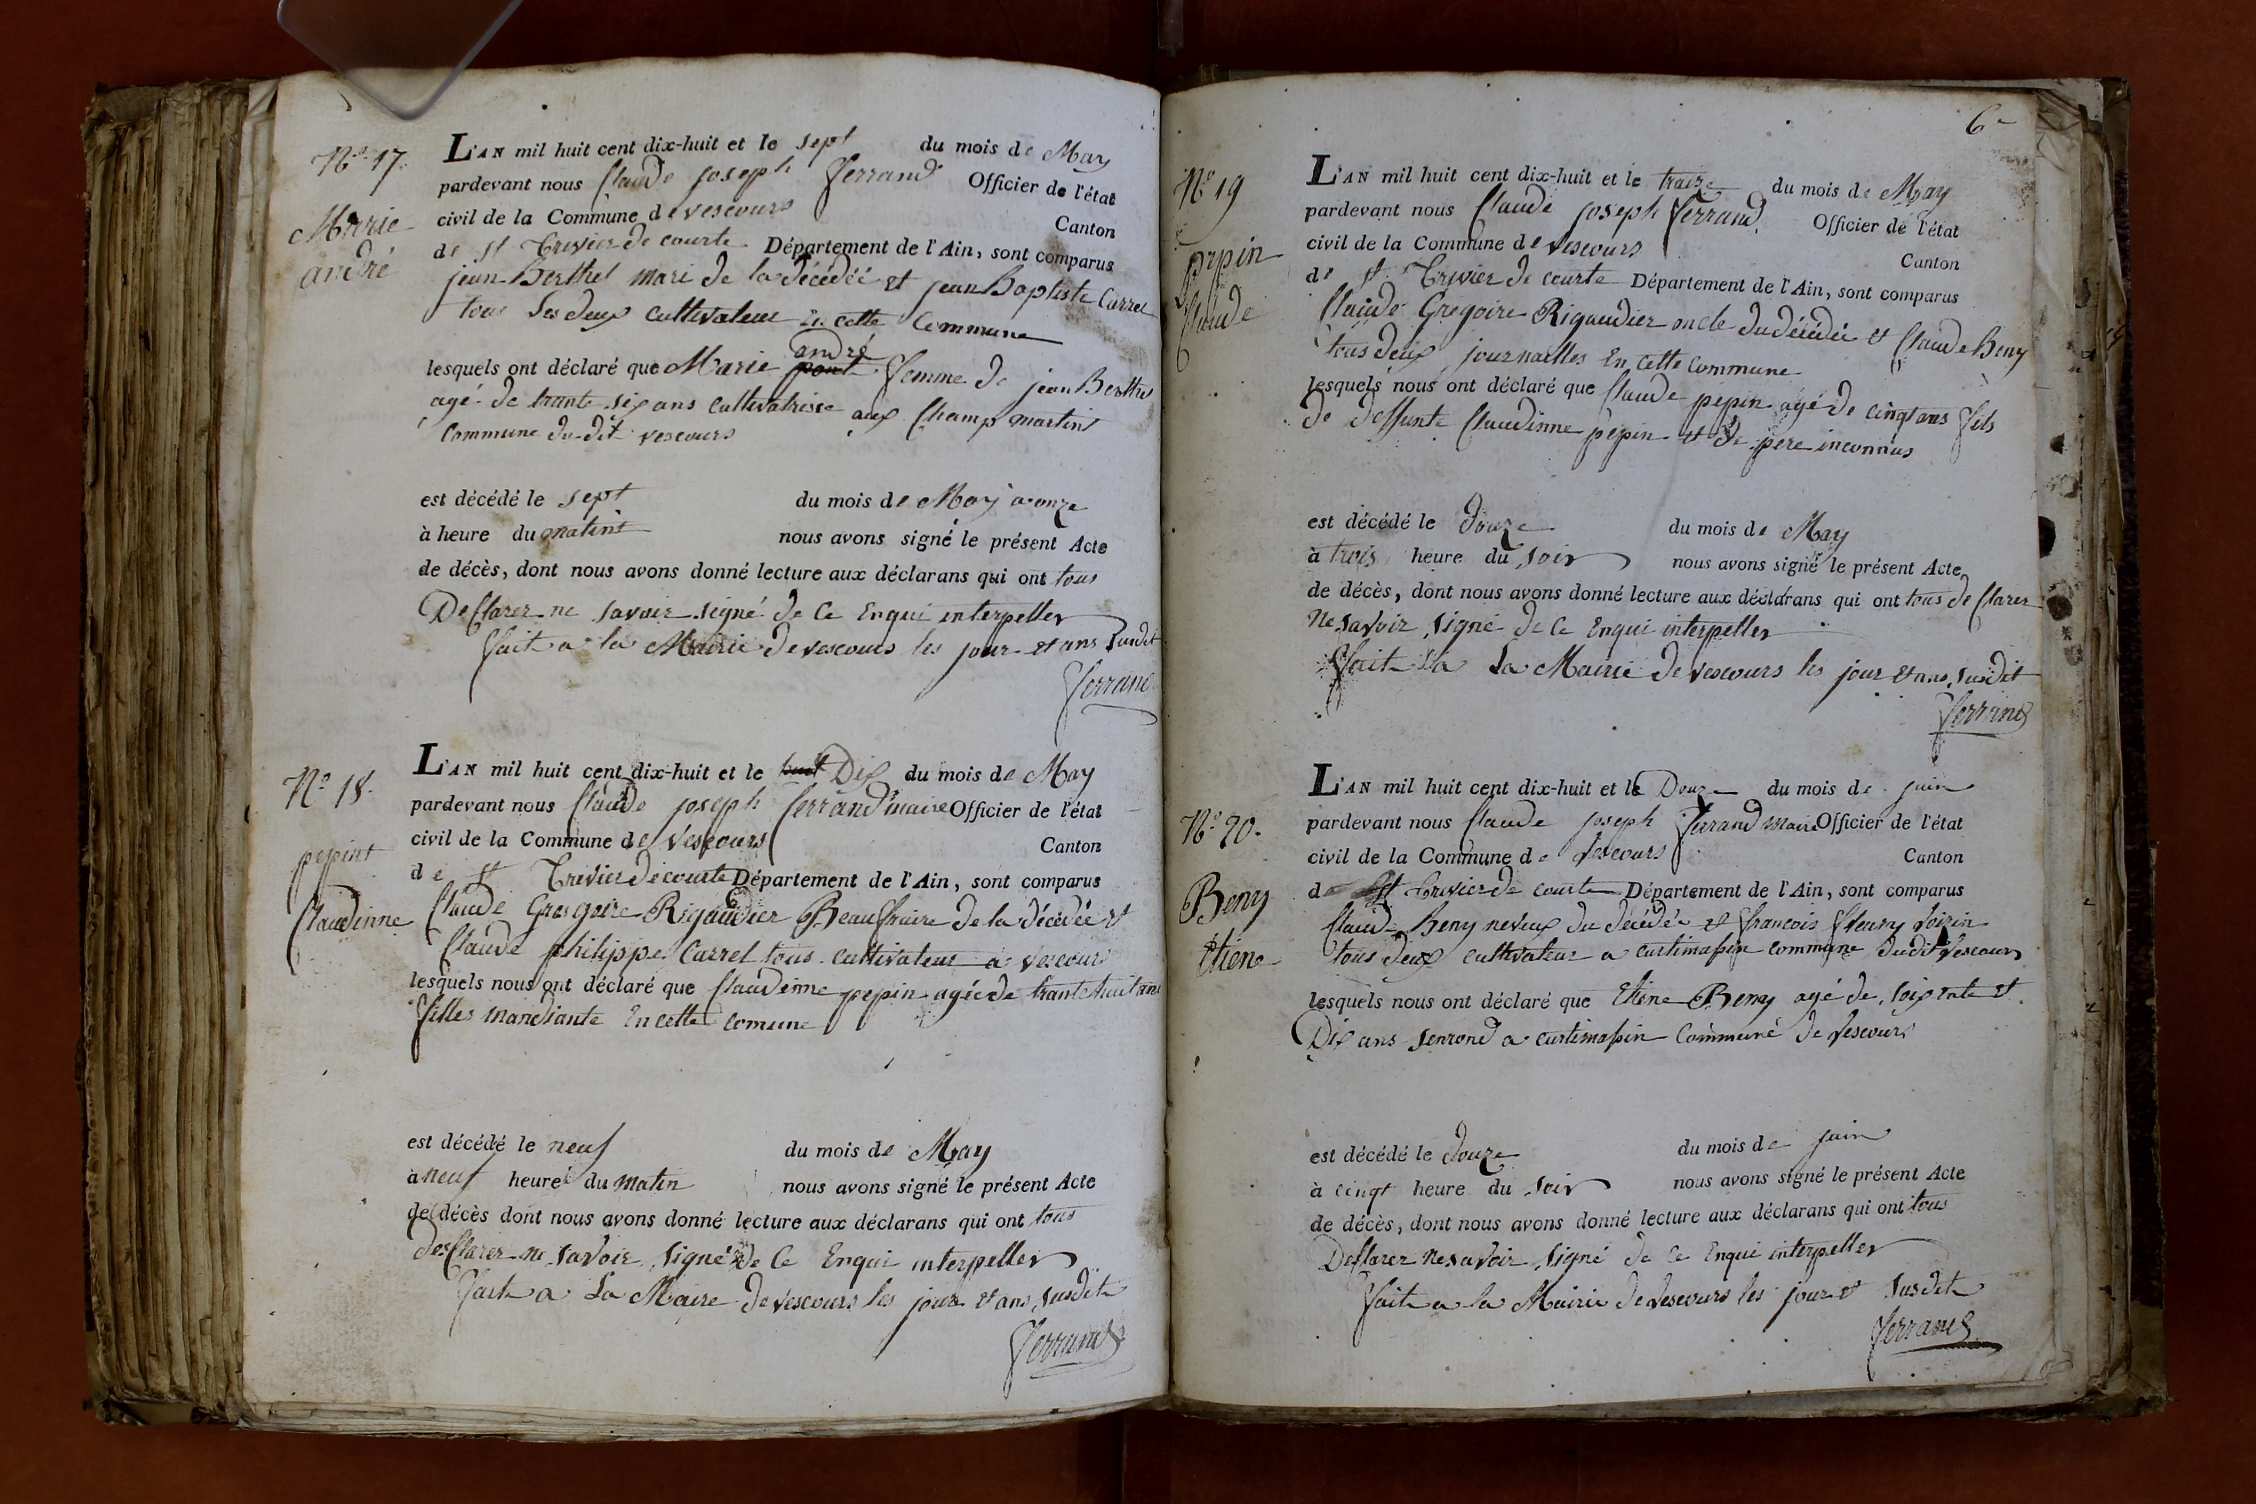 Nº 17.
Marie
andré
L'AN mil huit cent dix-huit et le sept du mois de May
pardevant nous Claude joseph Ferrand Officier de l'état
civil de la Commune de vescours Canton
de st Trivier de courte Département de l'Ain, sont comparus
jean Berthel mari de la décédéé et jean Baptiste Carrel
tous les deux cultivateur en cette Commune
andré
lesquels ont déclaré que Marie pont femme de jean Berthel
agé de trante six ans cultivatrisse aux Champ martint
Commune du dit vescours
est décédé le sept du mois de May a onze
à heure du matint nous avons signé le présent Acte
de décès, dont nous avons donné lecture aux déclarans qui ont tous
Desclarer ne savoir signé de Ce Enqui interpeller
fait a la Mairie de vescours les jour et ans susdit
Ferrand
Nº 18.
pepint
Claudinne
L'AN mil huit cent dix-huit et le huit Dix du mois de May
pardevant nous Claude joseph ferrand maire Officier de l'état
civil de la Commune de Vescours Canton
de st Trivier de courte Département de l'Ain, sont comparus
Claude Gresgoire Rigaudier Beaufraire de la décédéé et
Claude philippe Carrel tous cultivateur a vescours
lesquels nous ont déclaré que Claudinne pepin agée de trante huit ans
filles mandiante En cette comune
est décédé le neuf du mois de May
à neuf heure du matin nous avons signé le présent Acte
de décès dont nous avons donné lecture aux déclarans qui ont tous
desclarer ne savoir signé de Ce Enqui interpeller
fait a La Maire de vescours les jour et ans susdit
Ferrand
6
Nº 19
pepin
Claude
L'AN mil huit cent dix-huit et le traize du mois de May
pardevant nous Claude joseph ferrand. Officier de l'état
civil de la Commune de vescours Canton
de st Trivier de courte Département de l'Ain, sont comparus
Claude Gregoire Rigaudier oncle du décédéé et Claude Beny
tous deux journailles En cette commune
lesquels nous ont déclaré que Claude pepin agé de cinq ans fils
de deffunte Claudinne pepin et de pere inconnus
est décédé le douze du mois de May
à trois heure du soir nous avons signé le présent Acte
de décès, dont nous avons donné lecture aux déclarans qui ont tous desclarer
Ne savoir signé de Ce Enqui interpeller
fait a La Mairie de vescours les jour et ans susdit
Ferrand
Nº 20.
Beny
Etiene
L'AN mil huit cent dix-huit et le Douze du mois de juin
pardevant nous Claude joseph ferrand maire Officier de l'état
civil de la Commune de Vescours Canton
de st Trivier de courte Département de l'Ain, sont comparus
Claude Beny neveux du décédée et francois fleury voizin
tous deux cultivateur a curtimassin commune dudit Vescours
lesquels nous ont déclaré que Etiene Beny agé de soixente et
Dix ans a curtimassin Commune de Vescours
est décédé le douze du mois de juin
à cinqt heure du soir nous avons signé le présent Acte
de décès, dont nous avons donné lecture aux déclarans qui ont tous
Desclarer ne savoir signé de Ce Enqui interpeller
fait a la Mairie de Vescours les jour et susdit
Ferrand